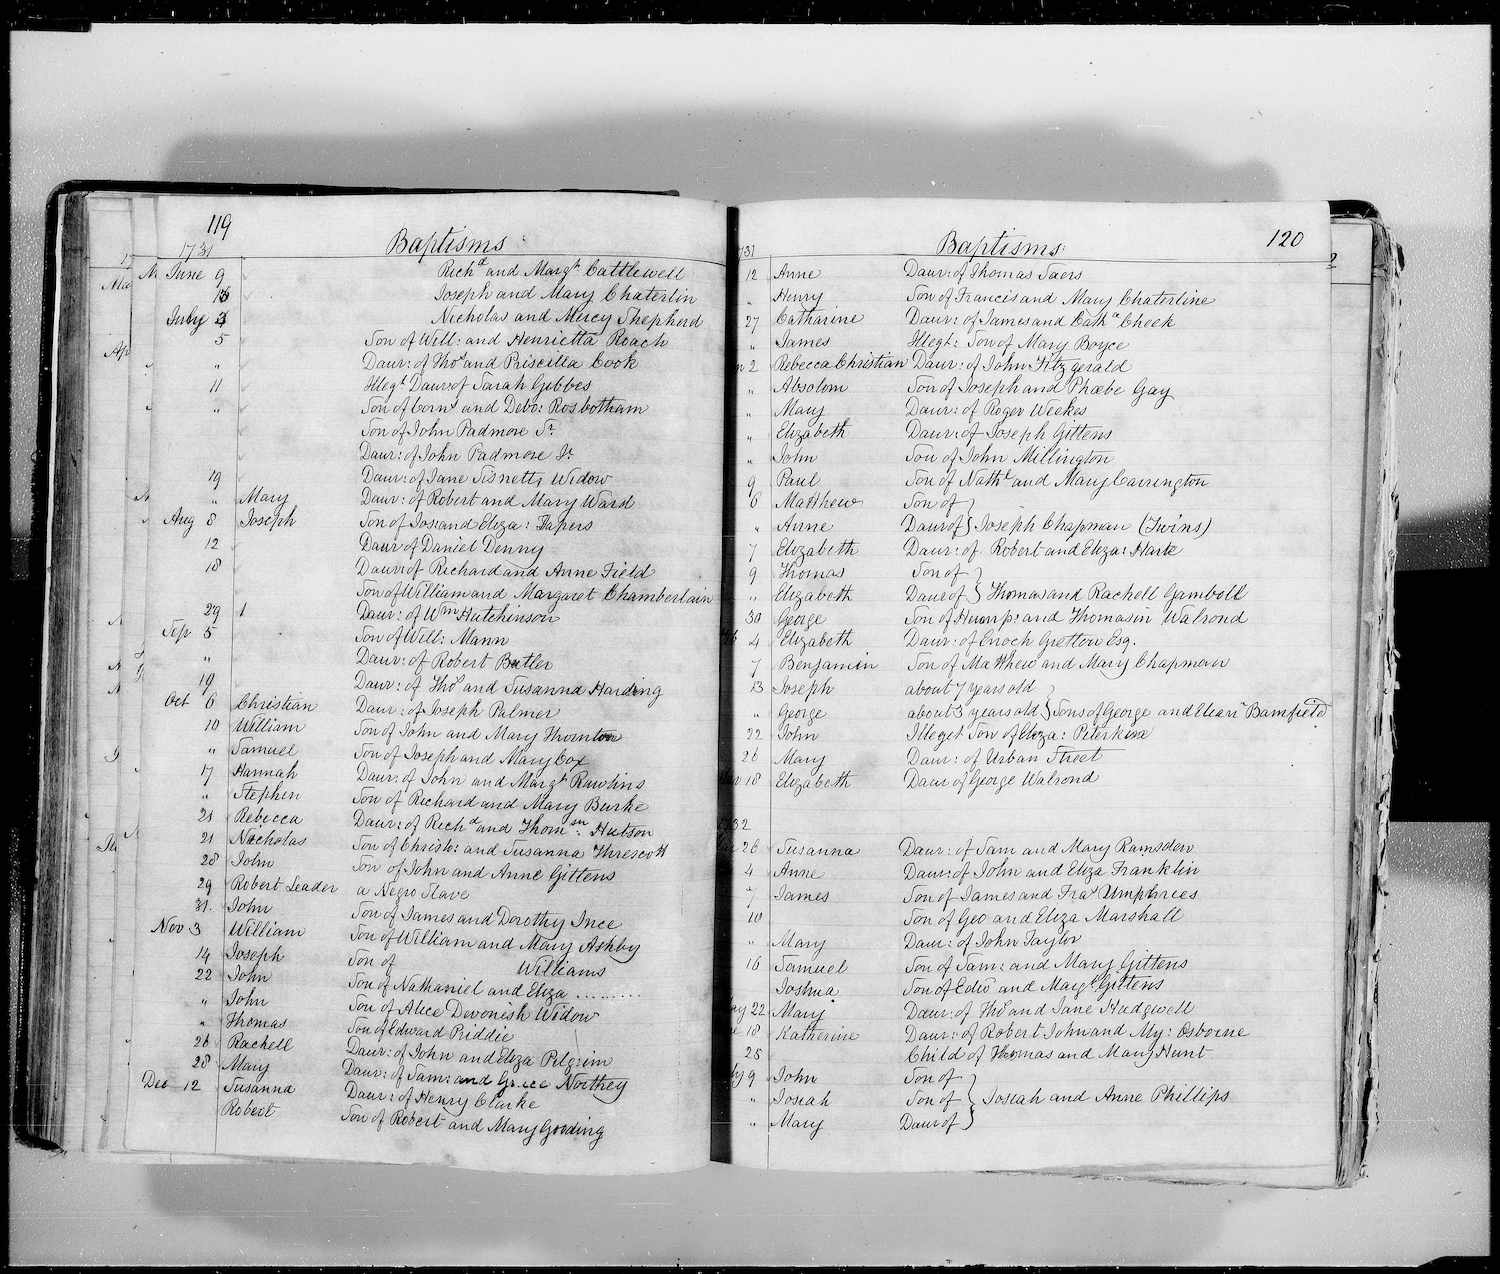 119
1731
Baptisms
June 9 Richd and Margt Cattlewell
Joseph and Mary Chaterlin
July Nicholas and Mercy Shepherd
5 Son of Will: and Henrietta Roach
" Daur: of Thos and Priscilla Cook
11 Illegt Daur of Sarah Gibbes
" Son of Corns and Debo: Rosbotham
Son of John Padmore Sr
Daur: of John Padmore Jr
19 Daur: of Jane Sisnett Widow
" Mary Daur: of Robert and Mary Ward
Aug 8 Joseph Son of Jos: and Eliza:
12 Daur of Daniel Denny
18 Daur: of Richard and Anne Field
Son of William and Margaret Chamberlain
29 Daur: of Wm Hutchinson
Sep 5 Son of Will: Mann
" Daur: of Robert Butler
19 Daur: of Thos and Susanna Harding
Oct 6 Christian Daur: of Joseph Palmer
10 William Son of John and Mary Thornton
" Samuel Son of Joseph and Mary Cox
17 Hannah Daur: of John and Margt Rawlins
" Stephen Son of Richard and Mary Burke
21 Rebecca Daur: of Richd and Thomsn: Hutson
21 Nicholas Son of Christo: and Susanna Threscott
28 John Son of John and Anne Gittens
29 Robert Leader a Negro Slave
31. John Son of James and Dorothy Ince
Nov 3 William Son of William and Mary Ashby
14 Joseph Son of Williams
22 John Son of Nathaniel and Eliza .........
" John Son of Alice Devonish Widow
" Thomas Son of Edward Priddie
26 Rachell Daur: of John and Eliza Pilgrim
28 Mary Daur: of Sam: and Grace Northey
Dec 12 Susanna Daur: of Henry Clarke
Robert Son of Robert and Mary Gooding
120
Baptisms:
12 Anne Daur: of Thomas Saers
" Henry Son of Francis and Mary Chaterline
27 Catharine Daur: of James and Catha Cheek
" James Illegt: Son of Mary Boyce
2 Rebecca Christian Daur: of John Fitzgerald
" Absolom Son of Joseph and Phœbe Gay
" Mary Daur: of Roger Weekes
" Elizabeth Daur: of Joseph Gittens
" John Son of John Millington
9 Paul Son of Nathl and Mary Carrington
6 Matthew Son of
" Anne Daur of } Joseph Chapman (Twins)
7 Elizabeth Daur: of Robert and Eliza: Harte
9 Thomas Son of
" Elizabeth Daur of } Thomas and Rachell Gamboll
30 George Son of Hump: and Thomasin Walrond
4 Elizabeth Daur: of Enoch Gretton Esq.
7 Benjamin Son of Matthew and Mary Chapman
13 Joseph about 7 years old
" George about 3 years old } Sons of George and Eleanr Bamfield
22 John Illeget Son of Eliza: Peterkin
26 Mary Daur: of Urban Street
18 Elizabeth Daur of George Walrond
26 Susanna Daur: of Sam and Mary Ramsden
4 Anne Daur: of John and Eliza Franklin
7 James Son of James and Fras Umphries
10 Son of Geo and Eliza Marshall
" Mary Daur: of John Taylor
16 Samuel Son of Sam: and Mary Gittens
Joshua Son of Edwd and Margt Gittens
22 Mary Daur: of Thos and Jane Hudgwell
18 Katherine Daur: of Robert John and My: Osborne
25 Child of Thomas and Mary Hunt
9 John Son of
" Josiah Son of } Josiah and Anne Phillips
" Mary Daur of